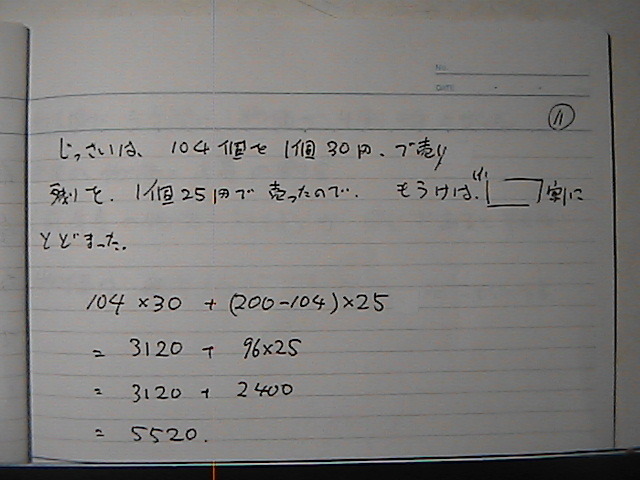 No.
DATE
⑪
じっさいは、104個を1個30円、で売り
残りを、1個25円で売ったので、もうけは、□割に
とどまった。
104×30 + (200-104)×25
= 3120 + 96×25
= 3120 + 2400
= 5520.